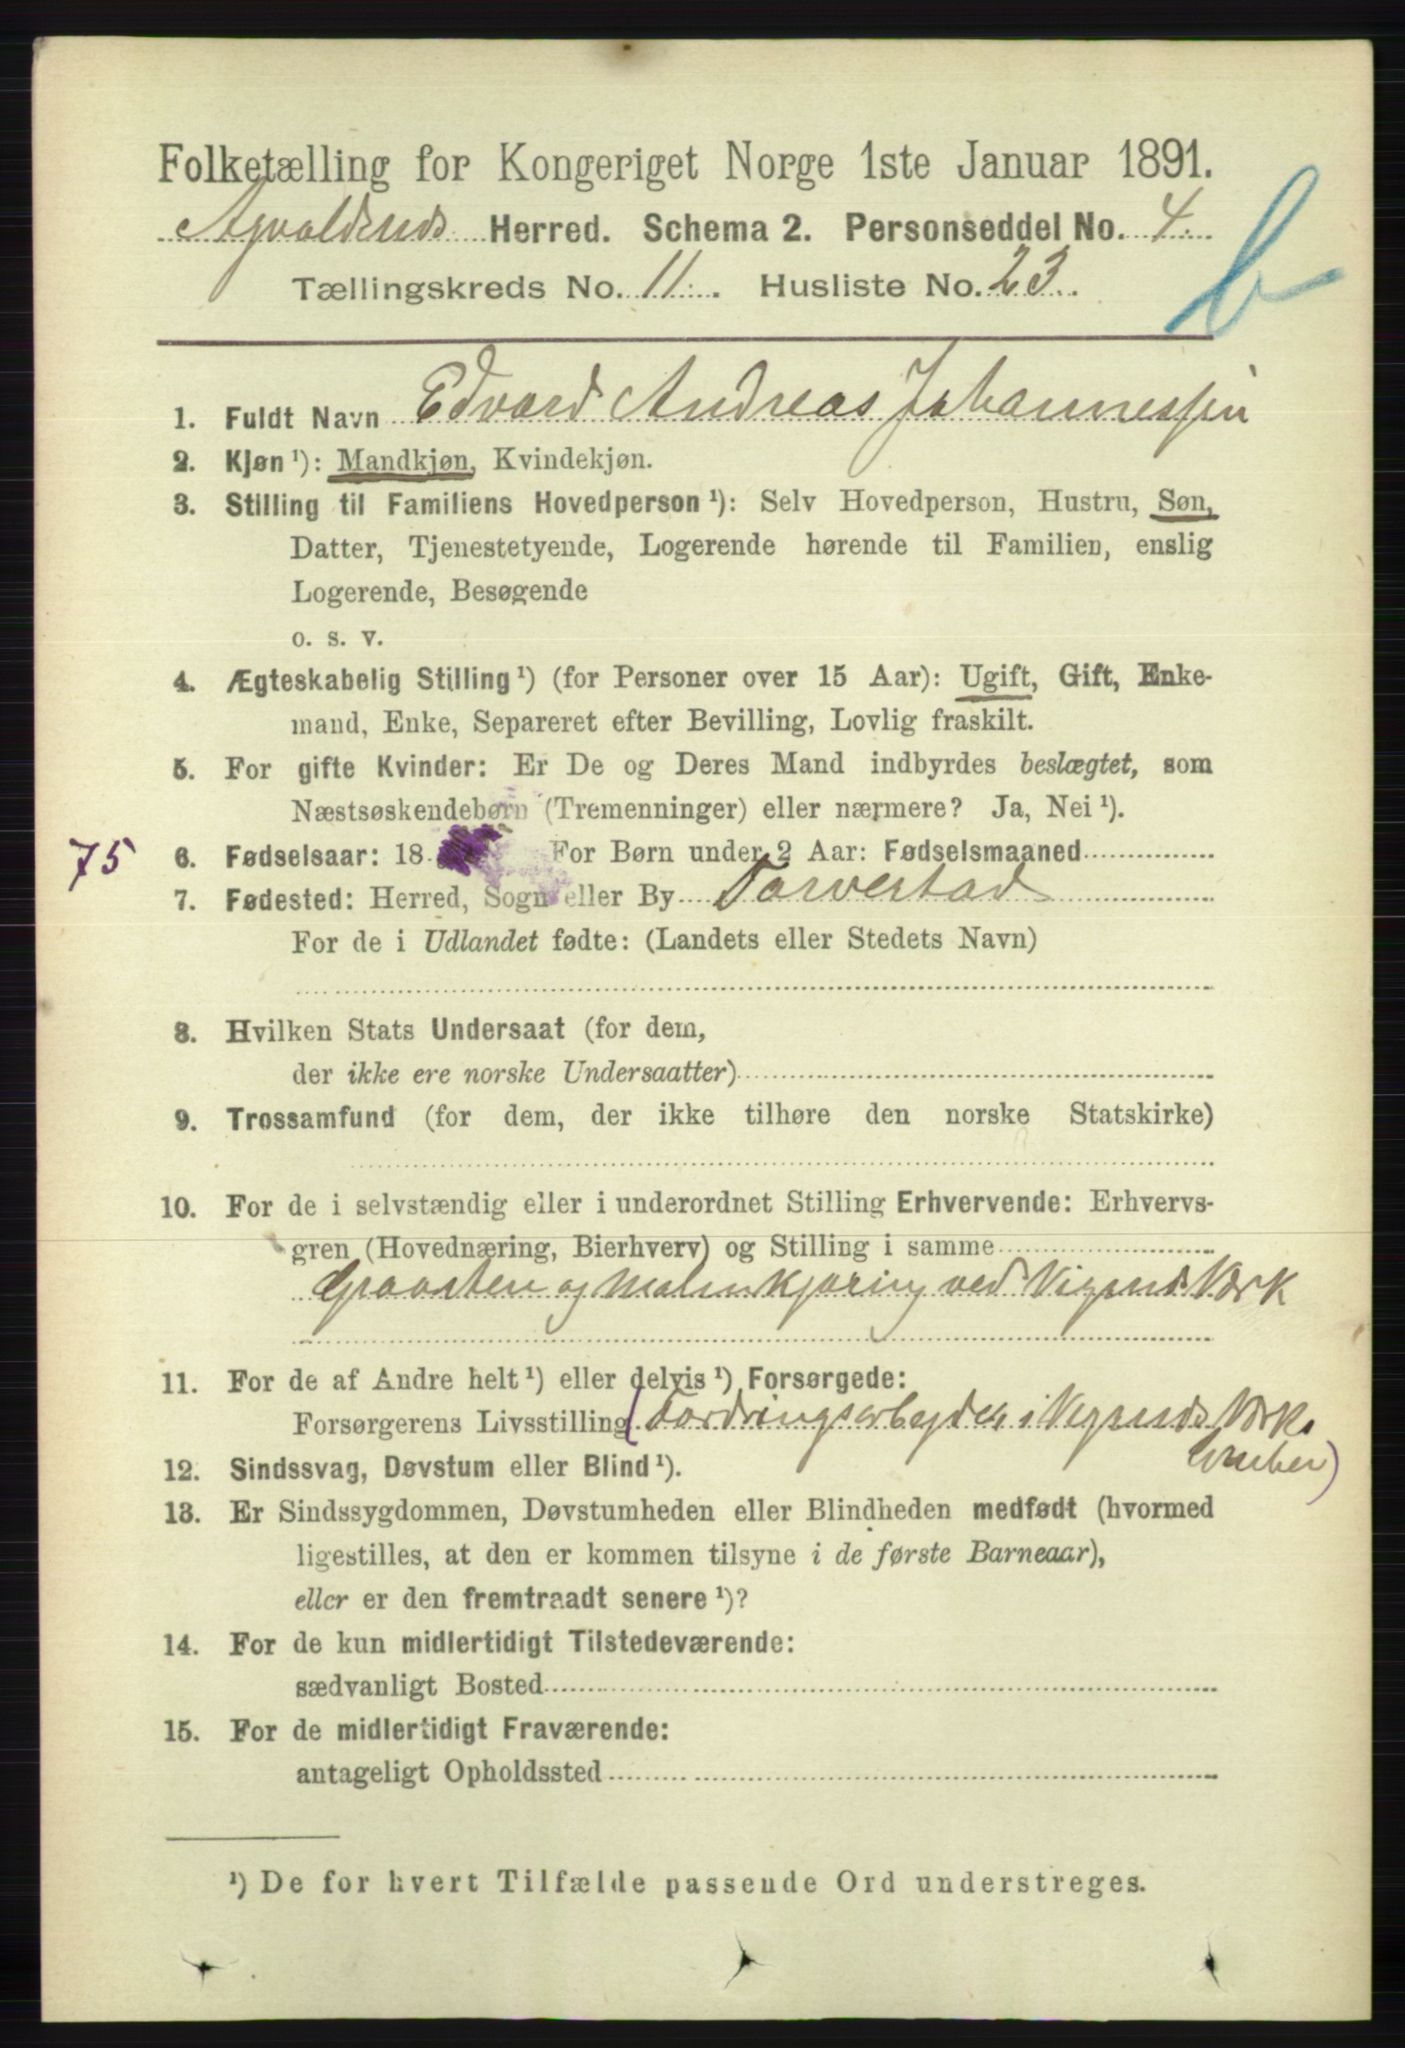 Folketælling for Kongeriget Norge 1ste Januar 1891.
Herred. Schema 2. Personseddel No. 4.
Tællingskreds No. 11. Husliste No. 23.
b
1. Fuldt Navn Edvard Andreas Johannessen
2. Kjøn ¹): Mandkjøn, Kvindekjøn.
3. Stilling til Familiens Hovedperson ¹): Selv Hovedperson, Hustru, Søn,
Datter, Tjenestetyende, Logerende hørende til Familien, enslig
Logerende, Besøgende
o. s. v.
4. Ægteskabelig Stilling ¹) (for Personer over 15 Aar): Ugift, Gift, Enke-
mand, Enke, Separeret efter Bevilling, Lovlig fraskilt.
5. For gifte Kvinder: Er De og Deres Mand indbyrdes beslægtet, som
Næstsøskendebørn (Tremenninger) eller nærmere? Ja, Nei ¹).
75 6. Fødselsaar: 18 For Børn under 2 Aar: Fødselsmaaned
7. Fødested: Herred, Sogn eller By Torvestad
For de i Udlandet fødte: (Landets eller Stedets Navn)
8. Hvilken Stats Undersaat (for dem,
der ikke ere norske Undersaatter)
9. Trossamfund (for dem, der ikke tilhøre den norske Statskirke)
10. For de i selvstændig eller i underordnet Stilling Erhvervende: Erhvervs-
gren (Hovednæring, Bierhverv) og Stilling i samme
Graasten og Malmkjøring ved Vigsnæs Værk
11. For de af Andre helt ¹) eller delvis ¹) Forsørgede:
Forsørgerens Livsstilling (Fordringsarbeyder i Vigsnæs Værks
Gruber)
12. Sindssvag, Døvstum eller Blind ¹).
13. Er Sindssygdommen, Døvstumheden eller Blindheden medfødt (hvormed
ligestilles, at den er kommen tilsyne i de første Barneaar),
eller er den fremtraadt senere ¹)?
14. For de kun midlertidigt Tilstedeværende:
sædvanligt Bosted
15. For de midlertidigt Fraværende:
antageligt Opholdssted
¹) De for hvert Tilfælde passende Ord understreges.